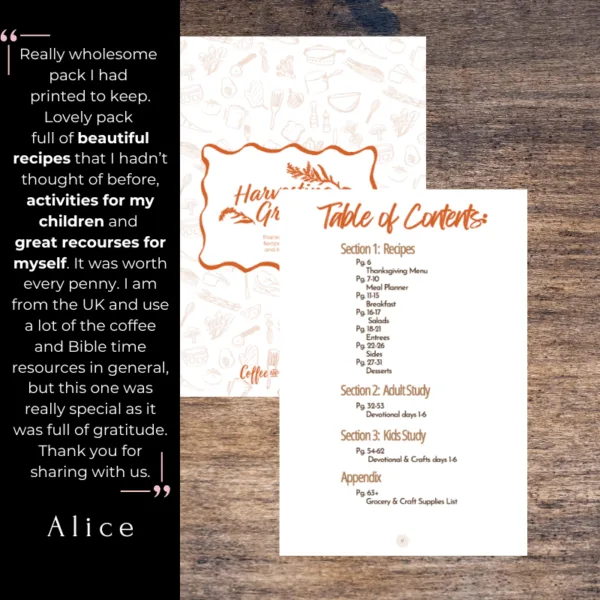 Really wholesome
pack I had
printed to keep.
Lovely pack
full of beautiful
recipes that I hadn't
thought of before,
activities for my
children and
great recourses for
myself. It was worth
every penny. I am
from the UK and use
a lot of the coffee
and Bible time
resources in general,
but this one was
really special as it
was full of gratitude.
Thank you for
sharing with us.
Alice
Coffee
Table of Contents:
Section 1: Recipes
Pg. 6
Thanksgiving Menu
Pg. 7-10
Meal Planner
Pg. 11-15
Breakfast
Pg. 16-17
Salads
Pg. 18-21
Entrees
Pg. 22-26
Sides
Pg. 27-31
Desserts
Section 2: Adult Study
Pg. 32-53
Devotional days 1-6
Section 3: Kids Study
Pg. 54-62
Devotional & Crafts days 1-6
Appendix
Pg. 63+
Grocery & Craft Supplies List